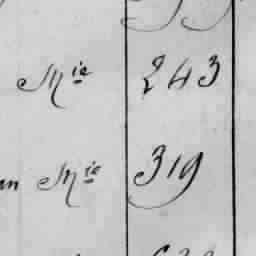 Mie 243
an Mie 319